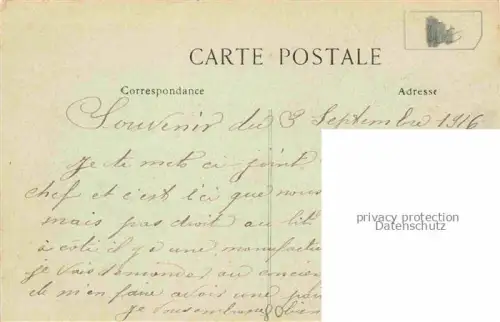 CARTE POSTALE
Correspondance
Adresse
Souvenir du 3 Septembre 1916
Je te mets ci-joint
chef et c'est ici que nous
mais pas droit au lit
à côté il y a une manufactu
je vais demander au
de m'en faire avoir une
Je vous embrasse bien
privacy protection
Datenschutz